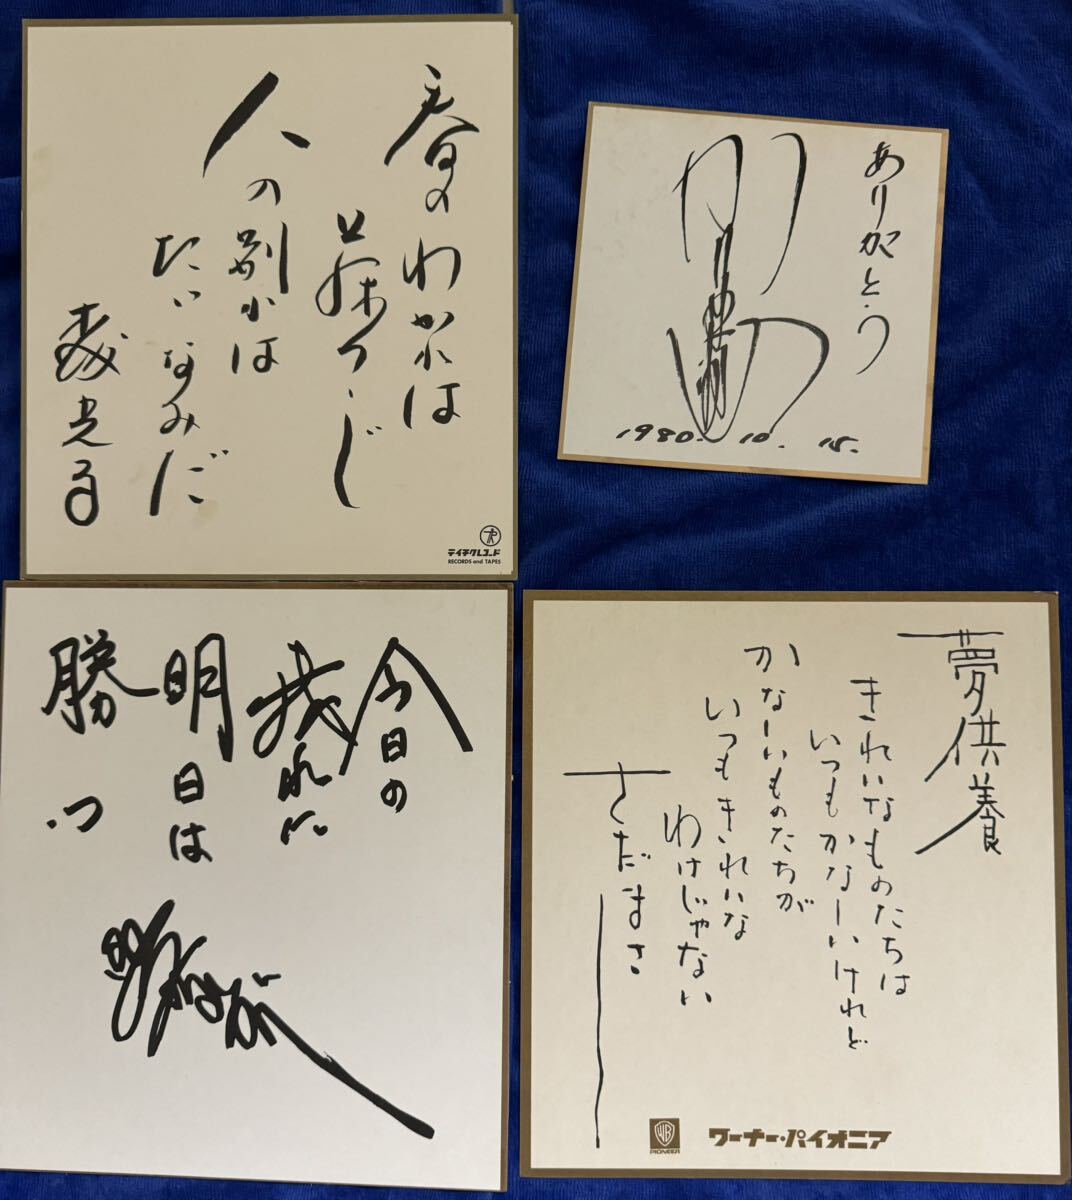 春の
わかれは
と藤つゞじ
人の
別かは
たいなみだ
テイチクレコード
RECORDS and TAPES
ありがとう
1980. 10. 15.
今日の
我に
明日は
勝つ
夢供養
きれいなものたちは
いつもかなしいけれど
かなしいものたちが
いつもきれいな
わけじゃない
さだまさし
WB
PIONEER
ワーナー・パイオニア